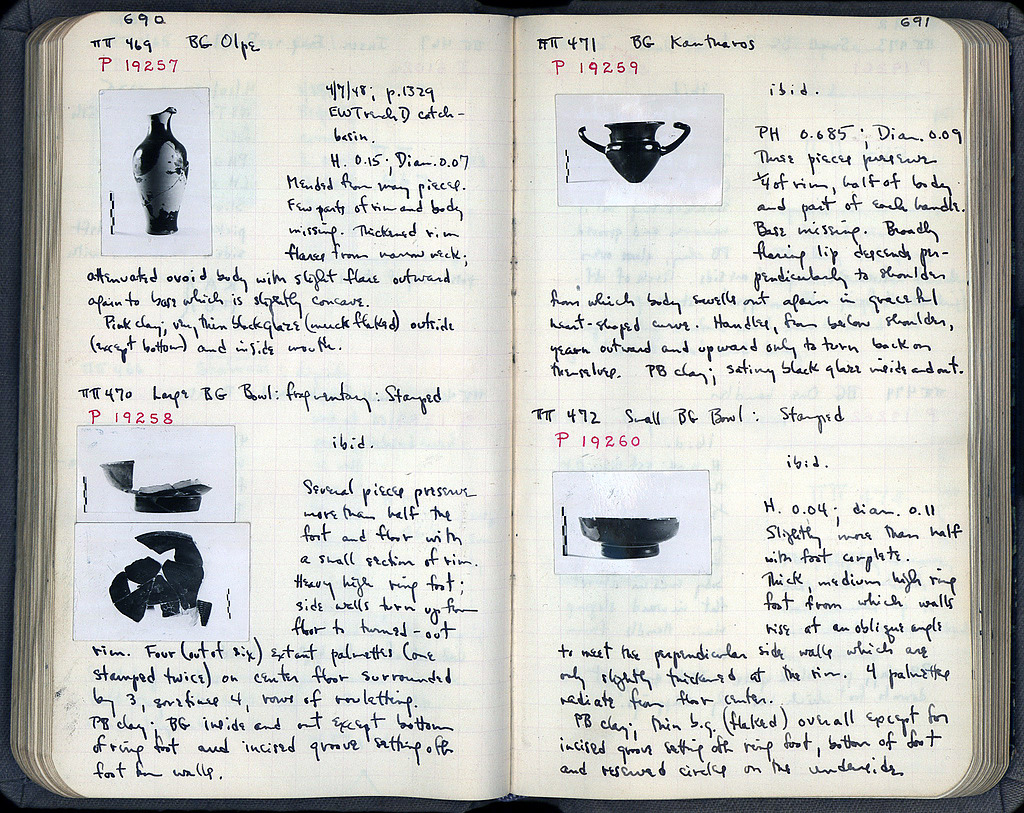 690
ΠΠ 469 BG Olpe
P 19257
4/7/48; p.1329
EW Trench D catch-
basin.
H. 0.15; Diam. 0.07
Mended from many pieces.
Few parts of rim and body
missing. Thickened rim
flares from narrow neck;
attenuated ovoid body with slight flare outward
again to base which is slightly concave.
Pink clay, very thin black glaze (much flaked) outside
(except bottom) and inside mouth.
ΠΠ 470 Large BG Bowl: fragmentary: Stamped
P 19258
ibid.
Several pieces preserve
more than half the
foot and floor with
a small section of rim.
Heavy high ring foot;
side walls turn up from
floor to turned-out
rim. Four (out of six) extant palmettes (one
stamped twice) on center floor surrounded
by 3, sometimes 4, rows of rouletting.
PB clay; BG inside and out except bottom
of ring foot and incised groove setting off
foot from walls.
691
ΠΠ 471 BG Kantharos
P 19259
ibid.
PH 0.685; Diam. 0.09
Three pieces preserve
1/4 of rim, half of body
and part of each handle.
Base missing. Broadly
flaring lip descends per-
pendicularly to shoulder
from which body swells out again in graceful
heart-shaped curve. Handles, from below shoulder,
yearn outward and upward only to turn back on
themselves. PB clay; satiny black glaze inside and out.
ΠΠ 472 Small BG Bowl: Stamped
P 19260
ibid.
H. 0.04; diam. 0.11
Slightly more than half
with foot complete.
Thick, medium high ring
foot from which walls
rise at an oblique angle
to meet the perpendicular side walls which are
only slightly thickened at the rim. 4 palmettes
radiate from floor center.
PB clay; thin b.g. (flaked) overall except for
incised groove setting off ring foot, bottom of foot
and reserved circles on the underside.